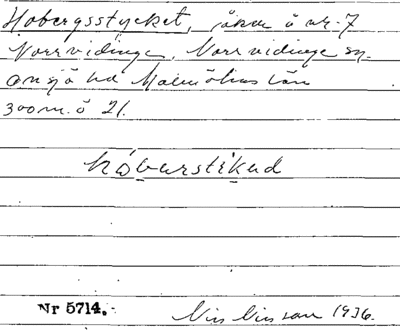 Hobergsstycket, åker å nr. 7
Norrvidinge, Norrvidinge sn.
Onsjö hd Malmöhus län
300 m. ö 21.
håbarstikad
Nr 5714.
Nils Nilsson 1936.